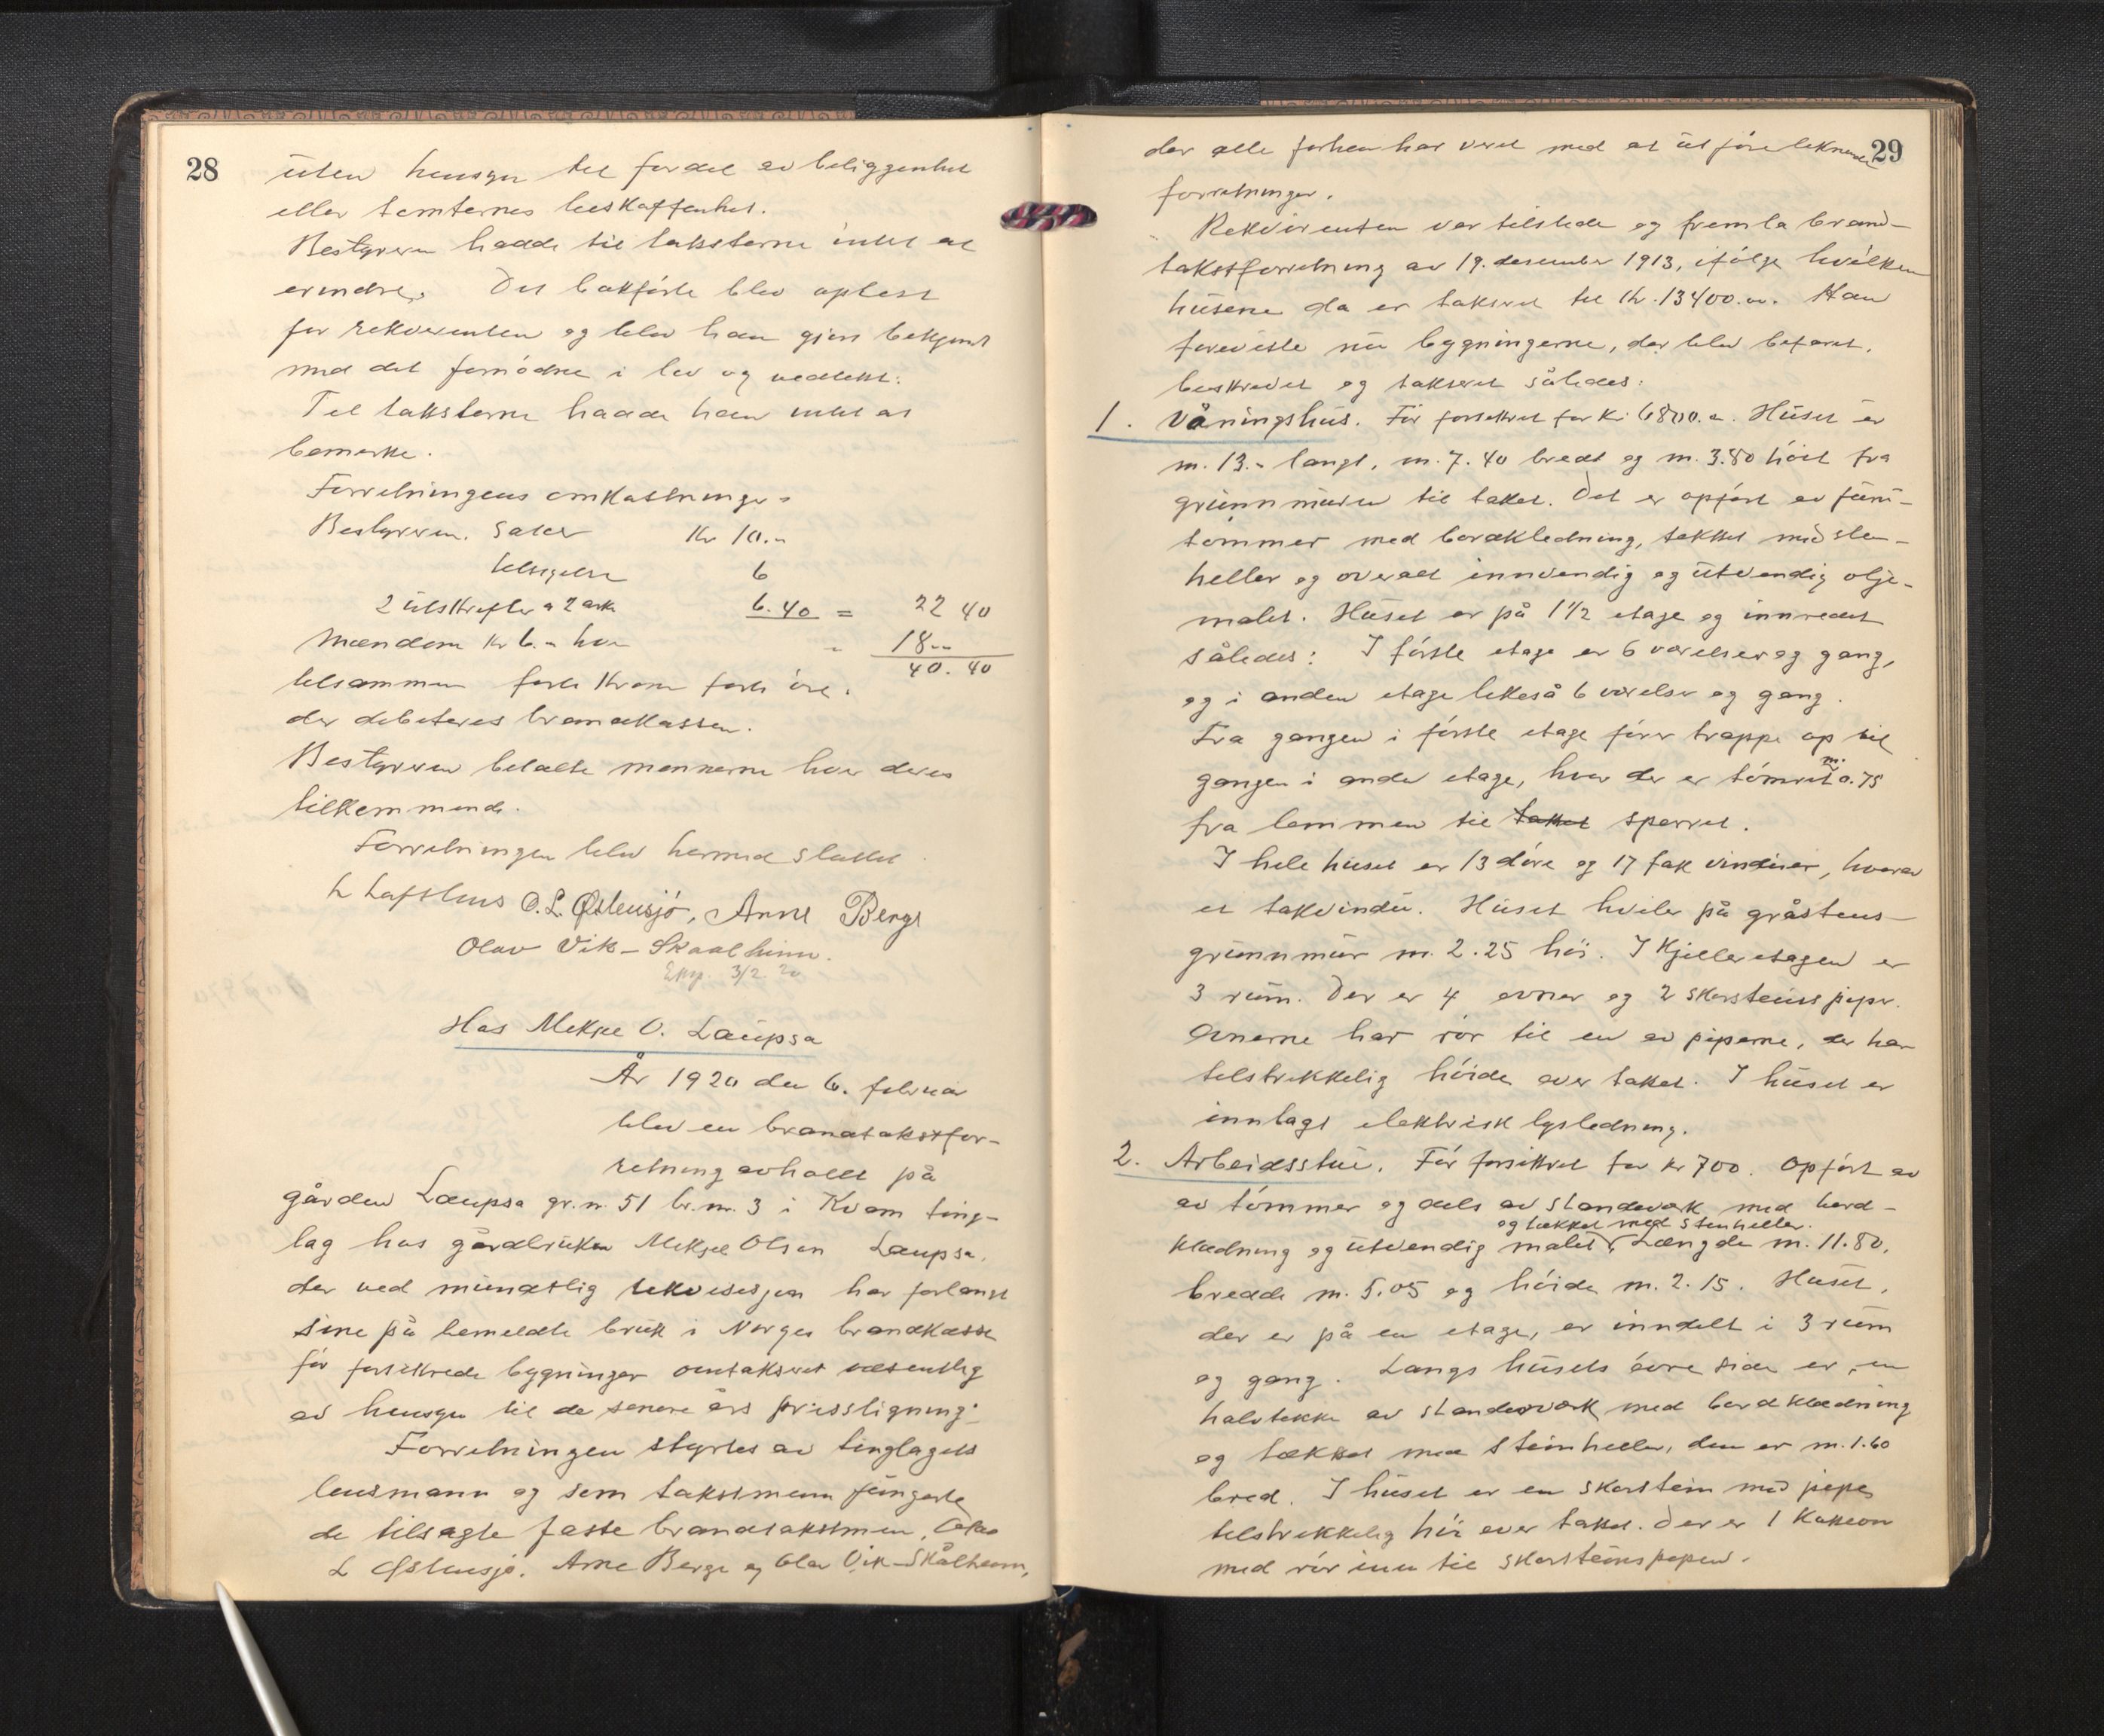 28
uten hensyn til fordel av beliggenhet
eller tomternes beskaffenhet.
Bestyreren hadde til taksterne intet at
erindre. Det bokførte blev oplest
for rekvirenten og blev han gjort bekjent
med det fornødne i lov og vedtekt.
Til taksterne hadde han intet at
bemerke.
Forretningens omkostninger:
Bestyreren. Salær Kr 10.-
tilsigelse 6
2 utskrifter a 2 ark 6.40 = 22 40
Mændene kr 6.- hver - 18--
40.40
tilsammen førti kroner førti øre.
der debiteres brandkassen.
Bestyreren betalte mennerne hver deres
tilkommende.
Forretningen blev hermed sluttet
L Lofthus O. L. Østensjø, Arne Berge
Olav Vik-Skaalheim.
Exp. 3/2 20
Hos Mekjel O. Laupsa
År 1920 den 6. februar
blev en brandtakstfor-
retning avholdt på
gården Laupsa gr.n. 51 br.nr. 3 i Kvam ting-
lag hos gårdbruker Mekjel Olsen Laupsa,
der ved mundtlig rekvisisjon har forlangt
sine på bemeldte bruk i Norges brandkasse
før forsikrede bygninger omtaksert væsentlig
av hensyn til de senere års prisstigning.
Forretningen styrtes av tinglagets
lensmann og som takstmenn fungerte
de tilsagte faste brandtakstmen,
L Østensjø. Arne Berge og Olav Vik-Skålheim,
29
der alle forhen har været med at utføre liknende
forretninger.
Rekvirenten var tilstede og fremla brand-
takstforretning av 19. desember 1913, ifølge hvilken
husene da er taksert til Kr. 13400.00. Han
foreviste nu bygningerne, der blev befaret,
beskrevet og taksert således:
1. Våningshus. Før forsikret for kr. 6800.-. Huset er
m. 13.- langt, m. 7.40 bredt og m. 3.80 høit fra
grunnmuren til taket. Det er opført av furu-
tømmer med bordkledning, tekket med sten-
heller og overalt innvendig og utvendig olje-
malet. Huset er på 1 1/2 etage og innredet
således: I første etage er 6 værelser og gang,
og i anden etage likeså 6 værelser og gang.
Fra gangen i første etage fører trappe op til
gangen i anden etage, hvor der er tømret m. 0.75
fra lemmen til taket sperret.
I hele huset er 13 døre og 17 fak vinduer, hvorav
et takvindu. Huset hviler på gråstens-
grunnmur m. 2.25 høi. I Kjelleretagen er
3 rum. Der er 4 ovner og 2 skorsteinspiper.
Ovnerne har rør til en av piperne, der har
tilstrekkelig høide over taket. I huset er
innlagt elektrisk lysledning.
2. Arbeidsstue. Før forsikret for kr 700. Opført av
av tømmer og dels av standerværk med bord-
og tækket med stenheller.
klædning og utvendig malet, Længde m. 11.80,
bredde m. 5.05 og høide m. 2.15. Huset,
der er på en etage, er inndelt i 3 rum
og gang. Langs husets øvre side er en
halvtekke av standerværk med bordklædning
og tækket med steinheller, den er m. 1.60
bred. I huset er en skorstein med pipe,
tilstrekkelig høi over taket. Der er 1 Kakkelovn
med rør inn til skorsteinspipen.